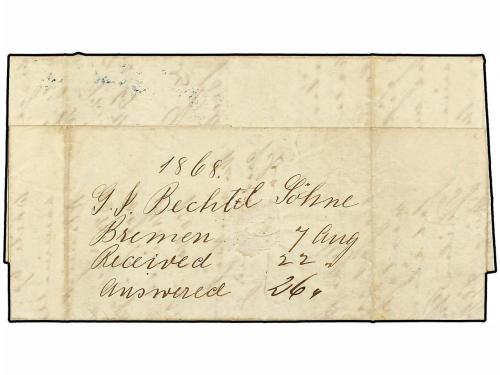 1868.
G. J. Bechtel Söhne
Bremen 7 Aug
Received 22 "
Answered 26 "